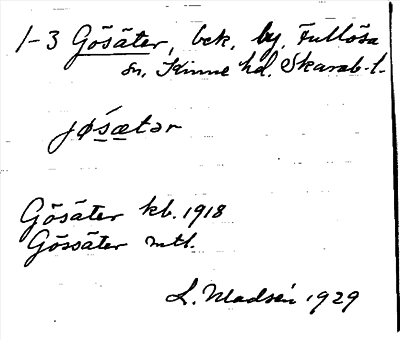 1-3 Gösäter, bek. by, Fullösa
sn, Kinne hd. Skarab. l.
jǿsætər
Gösäter kb. 1918
Gössäter mtl.
L. Madsén 1929